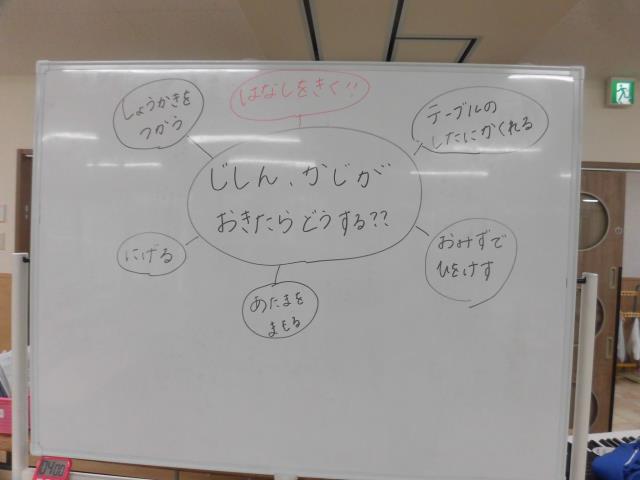 はなしをきく!!
しょうかきを
つかう
テーブルの
したにかくれる
じしん、かじが
おきたらどうする??
にげる
おみずで
ひをけす
あたまを
まもる